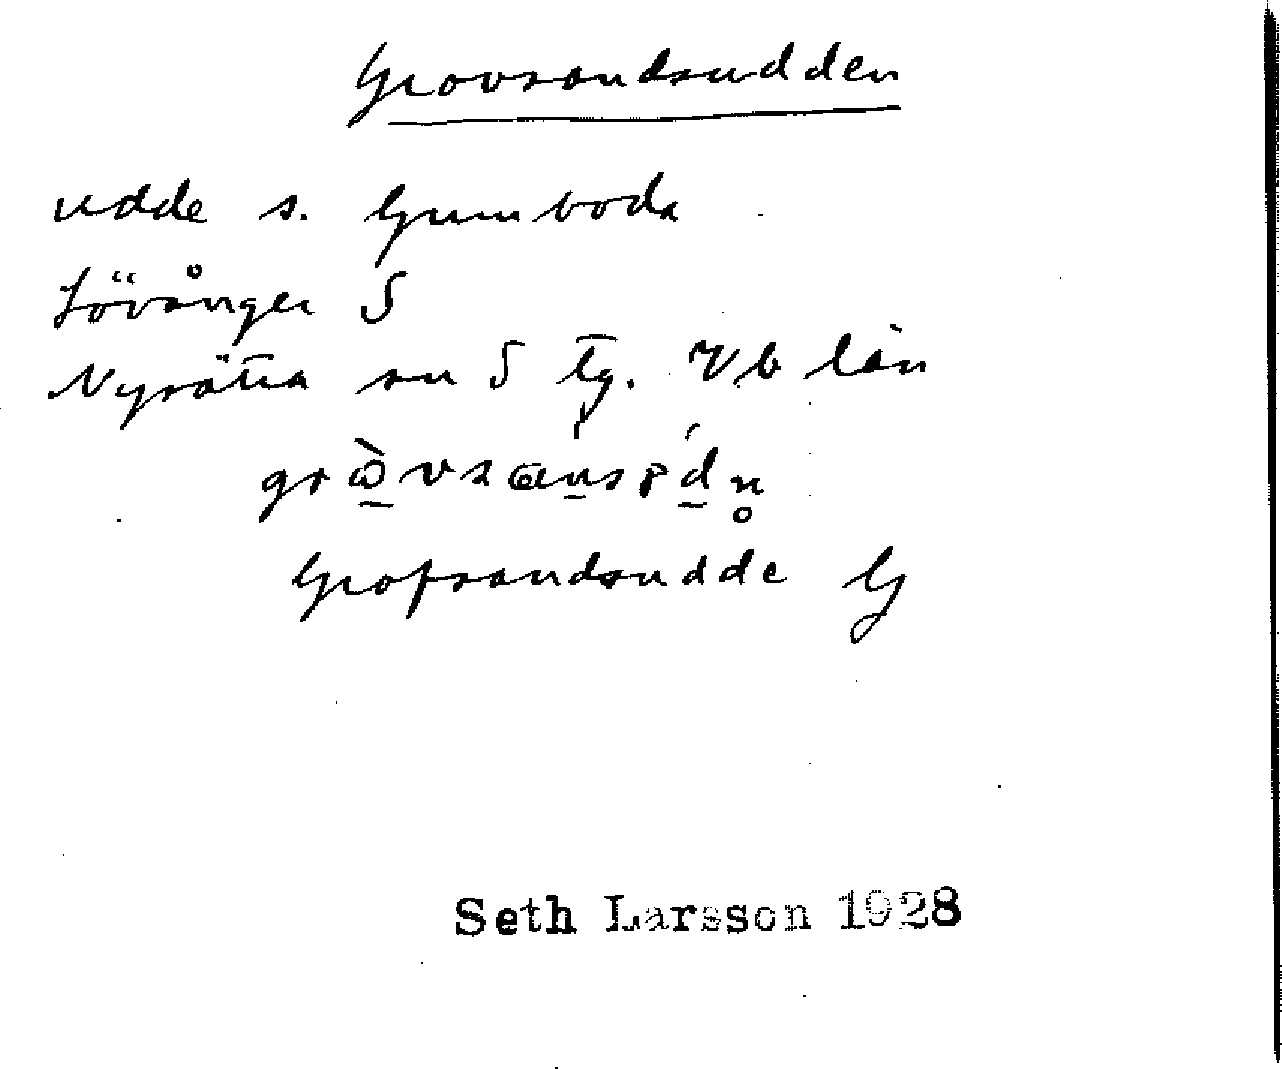 Grovsandsudden
udde s. Gumboda
Lövånger S
Nysätra sn S tg. Vb län
Grofsandsudde G
Seth Larsson 1928